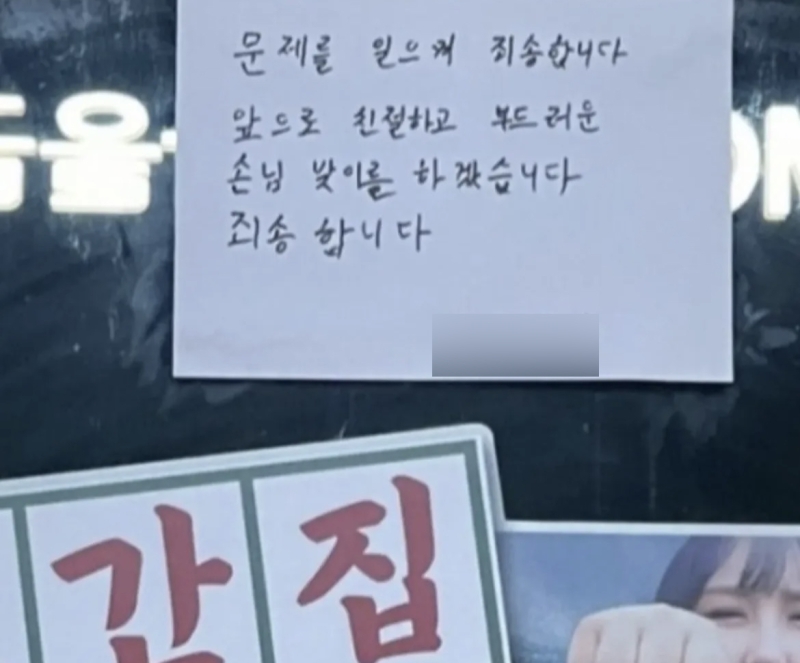 문제를 일으켜 죄송합니다
앞으로 친절하고 부드러운
손님 맞이를 하겠습니다
죄송 합니다
울
집